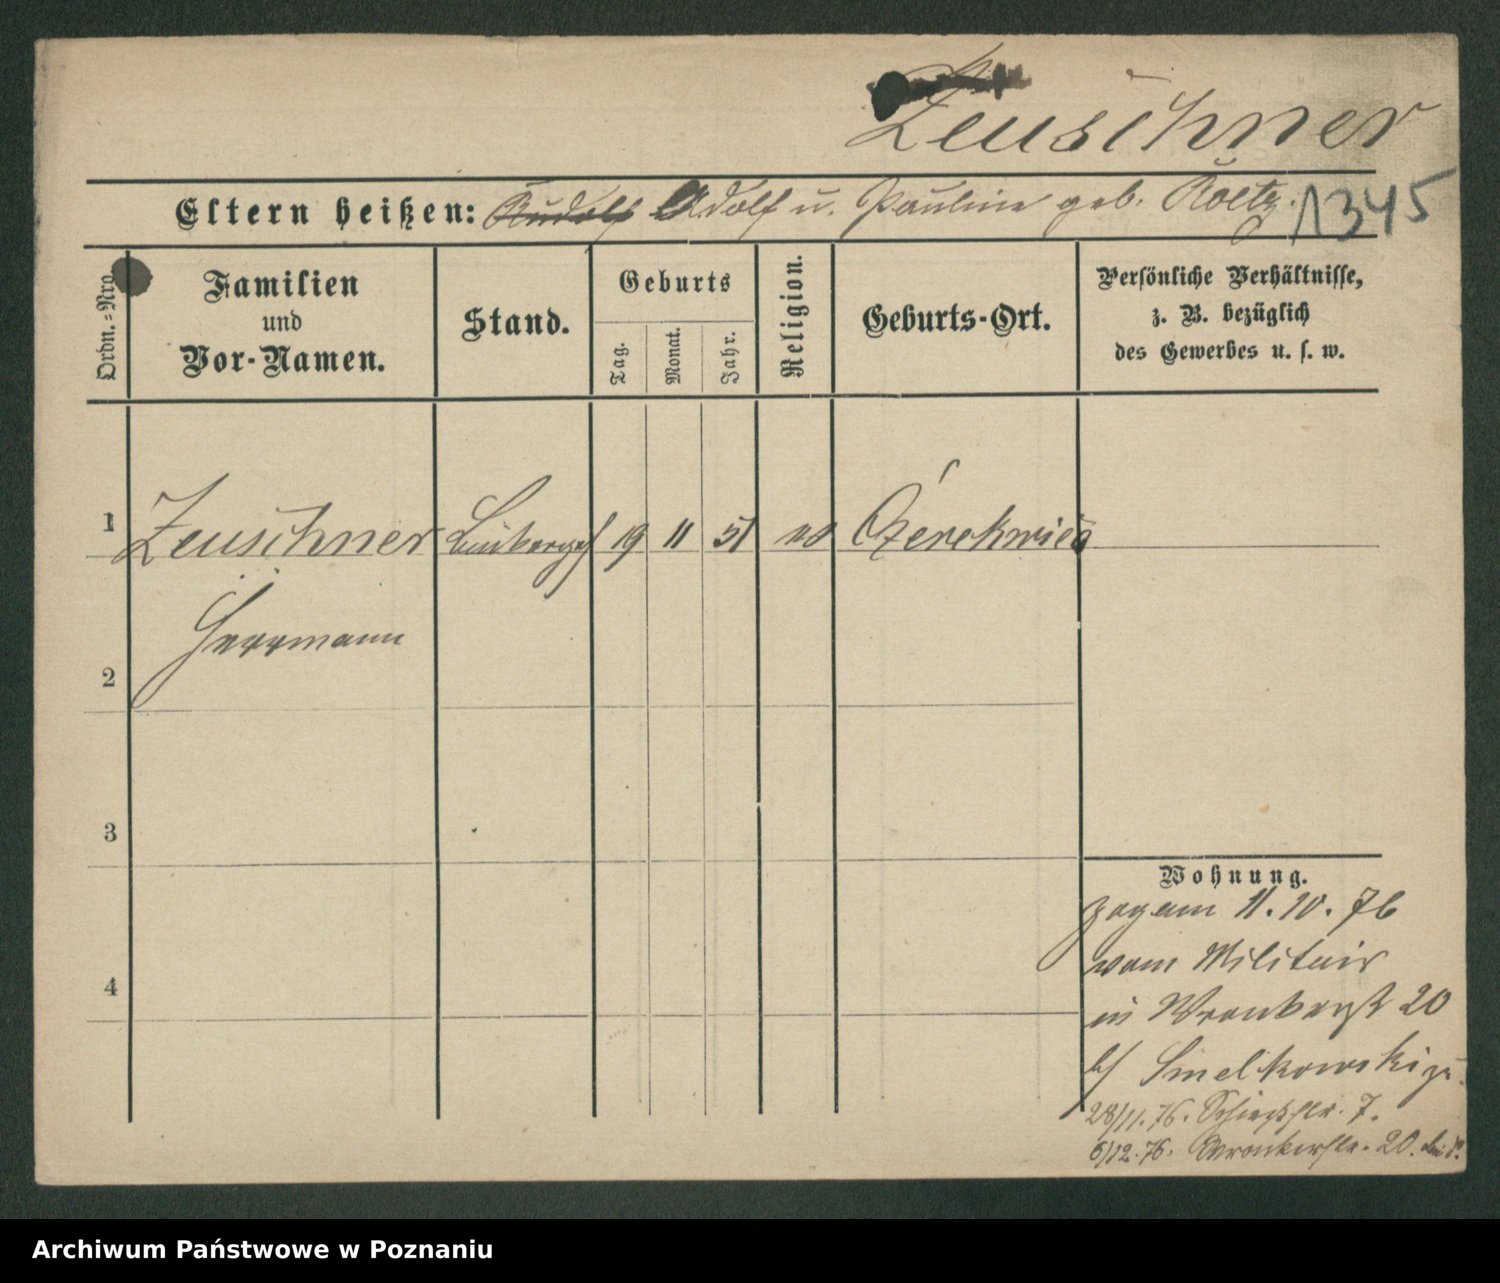 Zeuschner
Eltern heißen: Rudolf Adolf u. Pauline geb. Roetz.
1345
Ordn.=Nro.
Familien
und
Vor-Namen.
Stand.
Geburts
Tag.
Monat.
Jahr.
Religion.
Geburts-Ort.
Persönliche Verhältnisse,
z. B. bezüglich
des Gewerbes u. s. w.
1 Zeuschner 19 11 51 Czerekwica
Herrmann
2
3
4
Wohnung.
zog am 11.10.76
vom Militair
in Wronkerstr 20
b/ Smelkowski
28/11.76. Schießstr. 7.
6/12.76. Wronkerstr. 20.
Archiwum Państwowe w Poznaniu